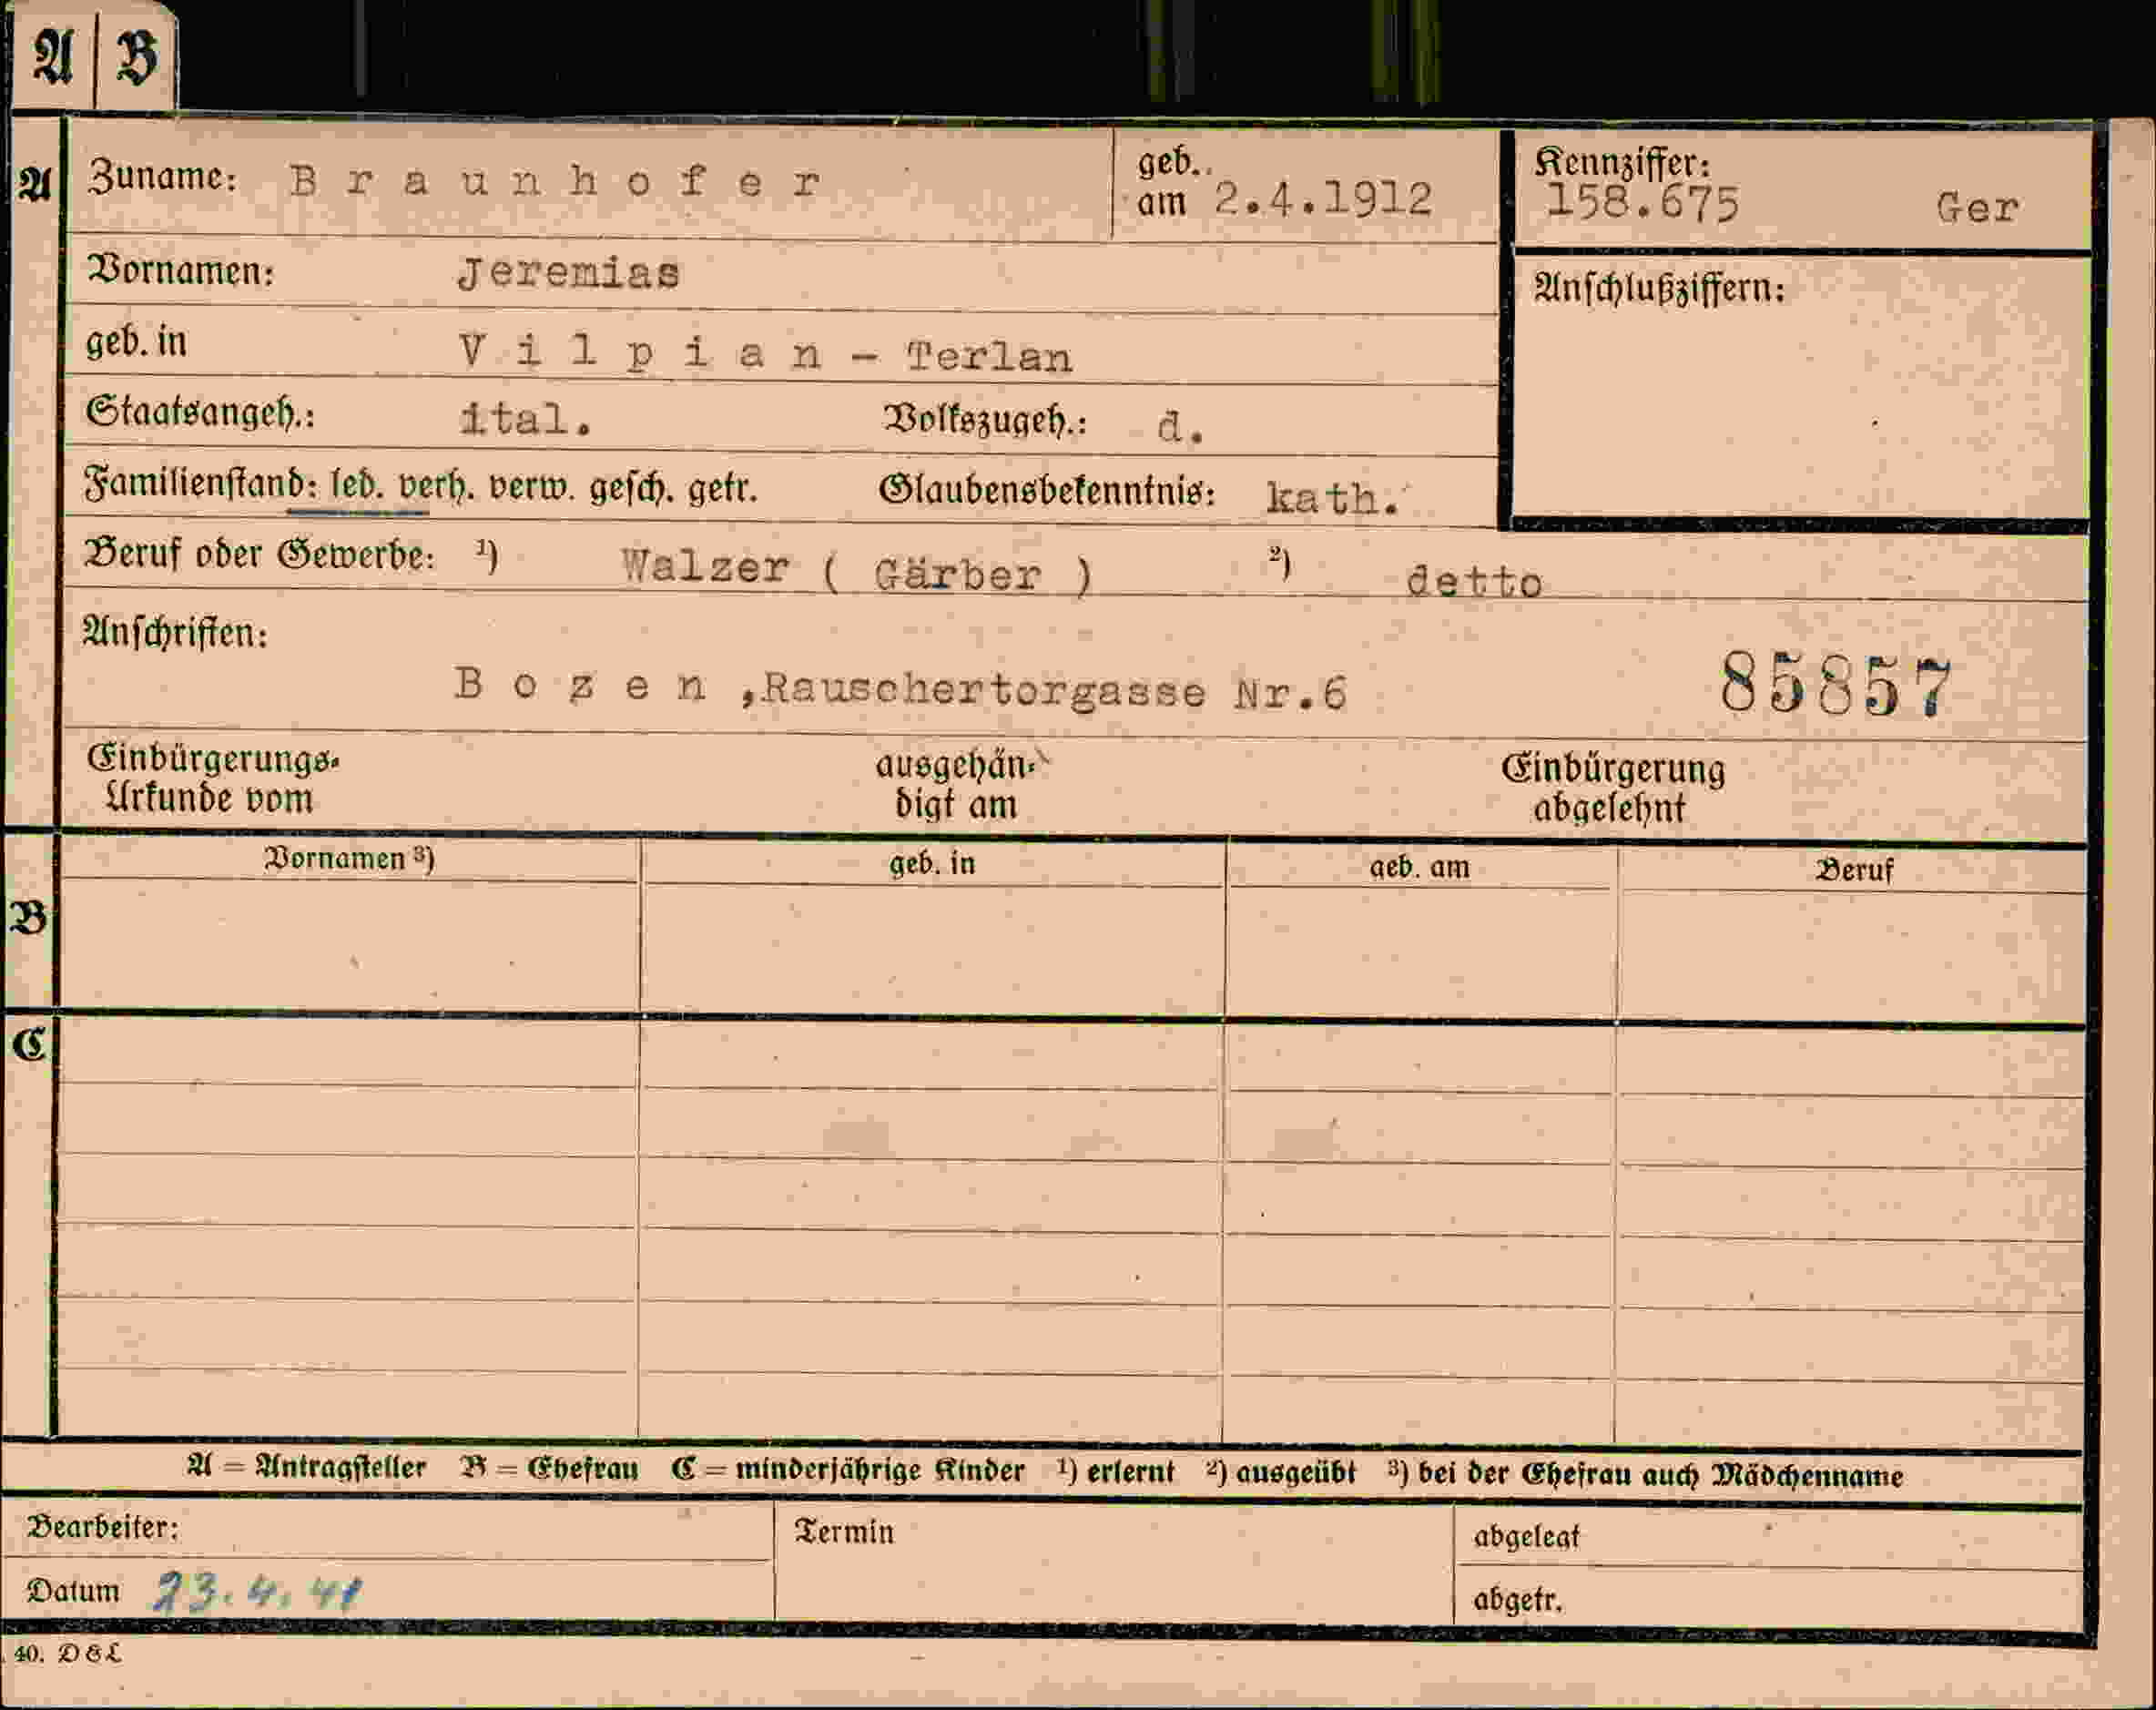 A | B
A
Zuname: Braunhofer
geb. am 2.4.1912
Kennziffer: 158.675 Ger
Vornamen: Jeremias
Anschlußziffern:
geb. in Vilpian - Terlan
Staatsangeh.: ital. Volkszugeh.: d.
Familienstand: led. verh. verw. gesch. getr. Glaubensbekenntnis: kath.
Beruf oder Gewerbe: 1) Walzer ( Gärber ) 2) detto
Anschriften:
Bozen ,Rauschertorgasse Nr.6 85857
Einbürgerungs- Urkunde vom
ausgehän- digt am
Einbürgerung abgelehnt
B
Vornamen 3) geb. in geb. am Beruf
C
A = Antragsteller B = Ehefrau C = minderjährige Kinder 1) erlernt 2) ausgeübt 3) bei der Ehefrau auch Mädchenname
Bearbeiter: Termin abgelegt
Datum 23.4.41 abgetr.
40. D&L